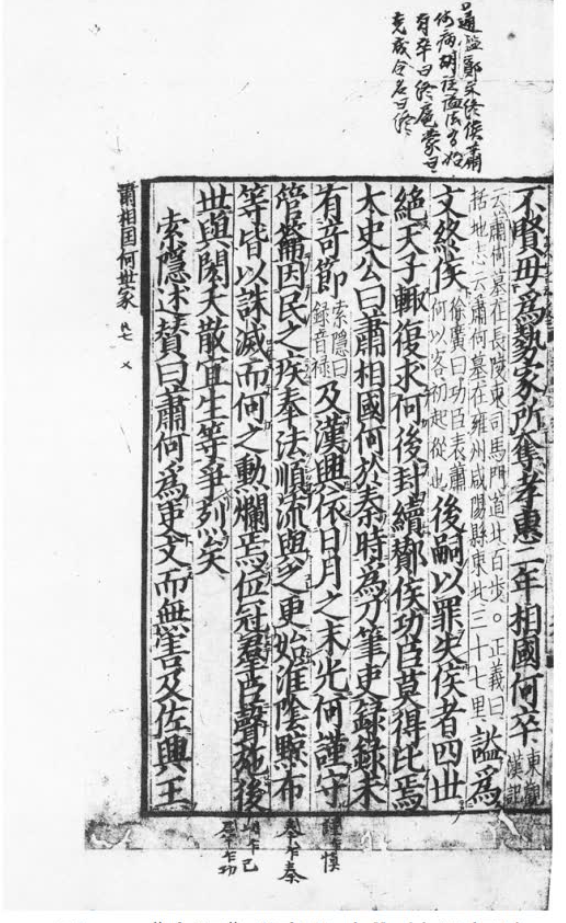 通謚鄭文終侯蕭
何病胡注謚法有始
有卒曰終扈蒙曰
克成令名曰終
不賢毋爲勢家所奪孝惠二年相國何卒東觀漢記
云蕭何墓在長陵東司馬門道北百步。正義曰
括地志云蕭何墓在雍州咸陽縣東北三十七里
謚爲
文終侯徐廣曰功臣表蕭何以客初起從也後嗣以罪失侯者四世
絶天子輙復求何後封續酇侯功臣莫得比焉
大史公曰蕭相國何於秦時爲刀筆吏録録未
有竒節索隱曰録音禄及漢興依日月之末光何謹守
管籥因民之疾奉法順流與之更始淮陰黥布
等皆以誅滅而何之勲爛焉位冠羣臣聲施後
世與閎夭散宜生等爭列矣
索隱述贊曰蕭何爲吏文而無害及佐興王
蕭相国何世家